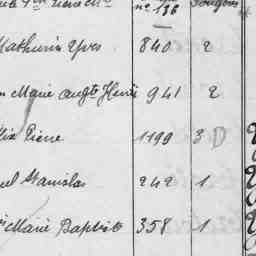 nº 136
Mathurin Yves 840 2
Marie Augte Henri 941 2
Pierre 1199 3 D
Stanislas 242 1
Marie Baptiste 358 1